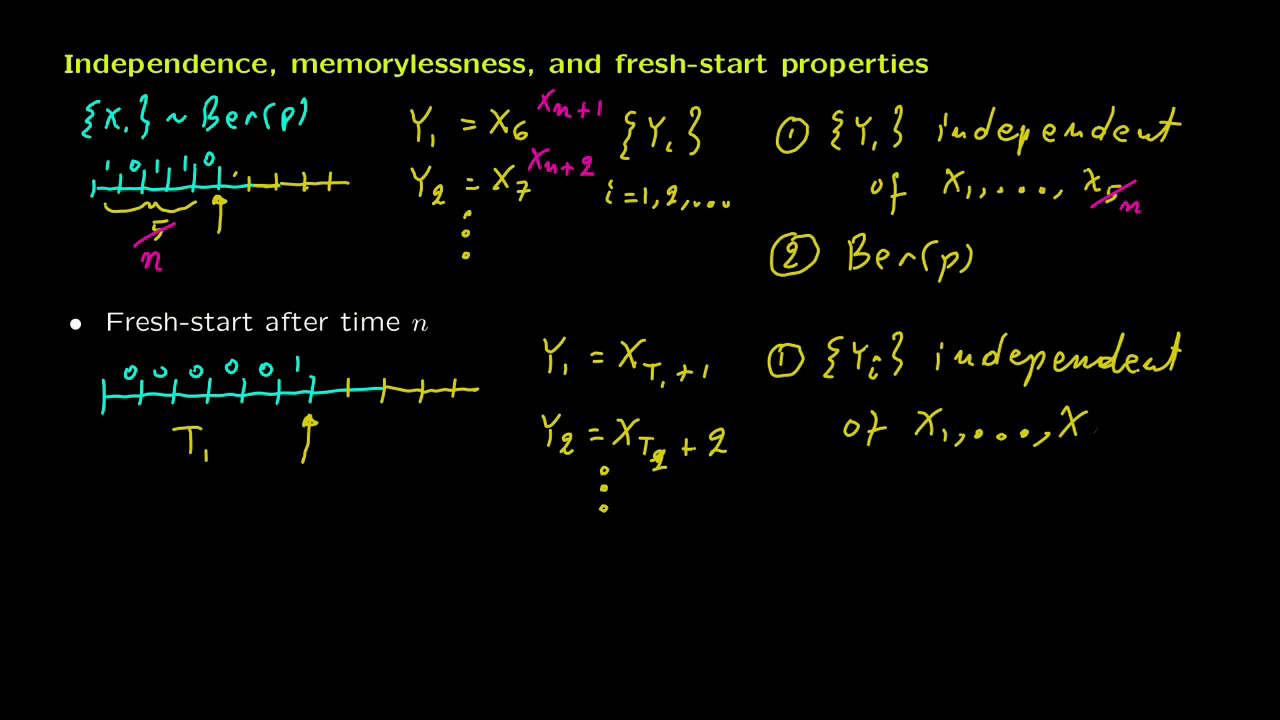 Independence, memorylessness, and fresh-start properties
{X_i} ~ Ber(p)
1 0 1 1 0
5
n
Y_1 = X_6 X_{n+1}
Y_2 = X_7 X_{n+2}
⋮
{Y_i}
i = 1, 2, ...
① {Y_i} independent
of X_1, ..., X_5 n
② Ber(p)
• Fresh-start after time n
0 0 0 0 0 1
T_1
Y_1 = X_{T_1 + 1}
Y_2 = X_{T_2 + 2}
⋮
① {Y_i} independent
of X_1, ..., X